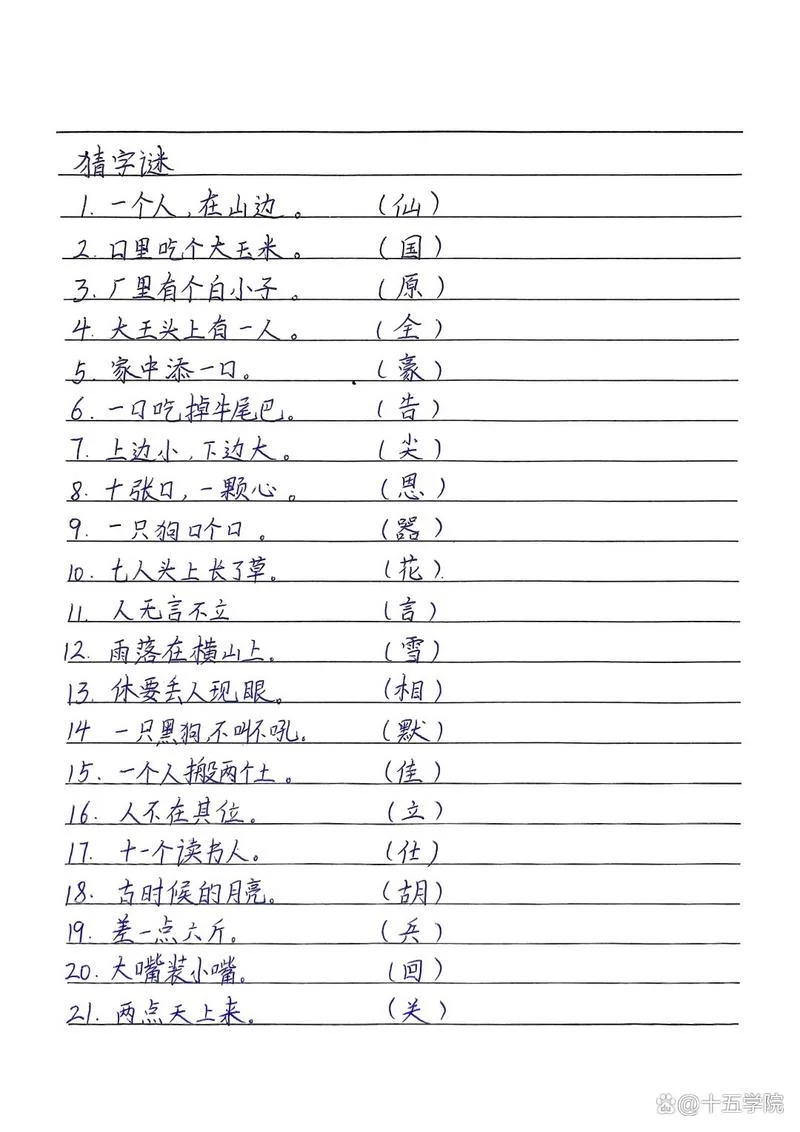 猜字谜
1. 一个人,在山边。 (仙)
2. 口里吃个大玉米。 (国)
3. 厂里有个白小子。 (原)
4. 大王头上有一人。 (全)
5. 家中添一口。 (豪)
6. 一口吃掉牛尾巴。 (告)
7. 上边小,下边大。 (尖)
8. 十张口,一颗心。 (思)
9. 一只狗口个口。 (器)
10. 七人头上长了草。 (花)
11. 人无言不立 (言)
12. 雨落在横山上。 (雪)
13. 休要丢人现眼。 (相)
14 一只黑狗,不叫不吼。 (默)
15. 一个人搬两个土。 (佳)
16. 人不在其位。 (立)
17. 十一个读书人。 (仕)
18. 古时候的月亮。 (胡)
19. 差一点六斤。 (兵)
20. 大嘴装小嘴。 (回)
21. 两点天上来。 (关)
@十五学院